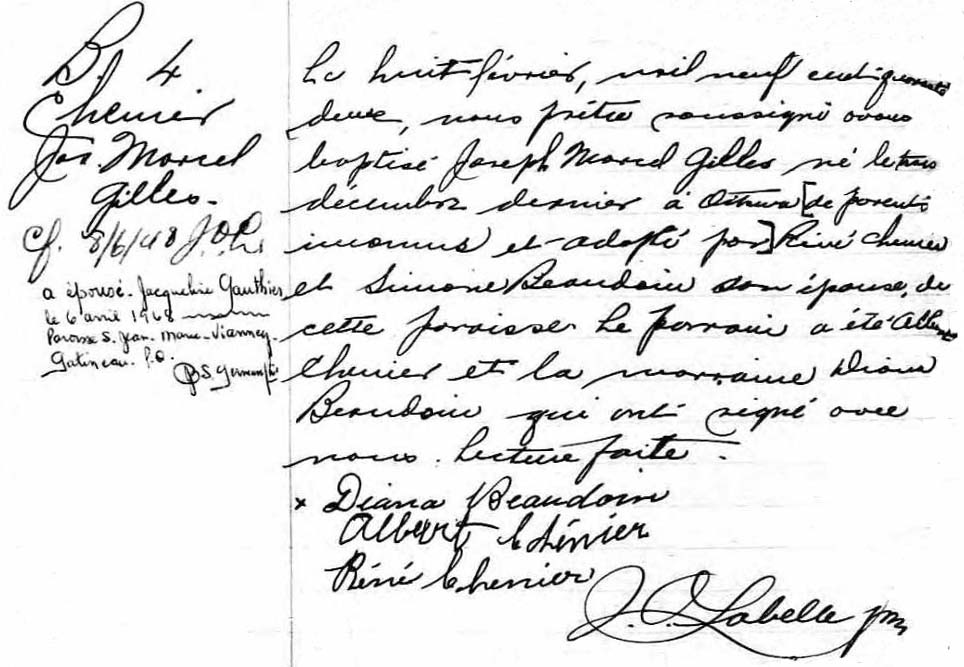 B. 4
Chenier
Jos. Marcel
Gilles.
cf. 8/6/48 J.O.L.
a épousé Jacqueline Gauthier
le 6 avril 1968
Paroisse S. Jean-Marie-Vianney
Gatineau. P.Q.
Le huit février, mil neuf cent quarante
deux, nous prêtre soussigné avons
baptisé Joseph Marcel Gilles né le trois
décembre dernier à Ottawa [de parents
inconnus et adopté par] Réné Chenier
et Simone Beaudoin son épouse, de
cette paroisse. Le parrain a été Albert
Chenier et la marraine Diana
Beaudoin qui ont signé avec
nous. Lecture faite.
x Diana Beaudoin
Albert Chénier
Réné Chenier
J. O. Labelle ptre